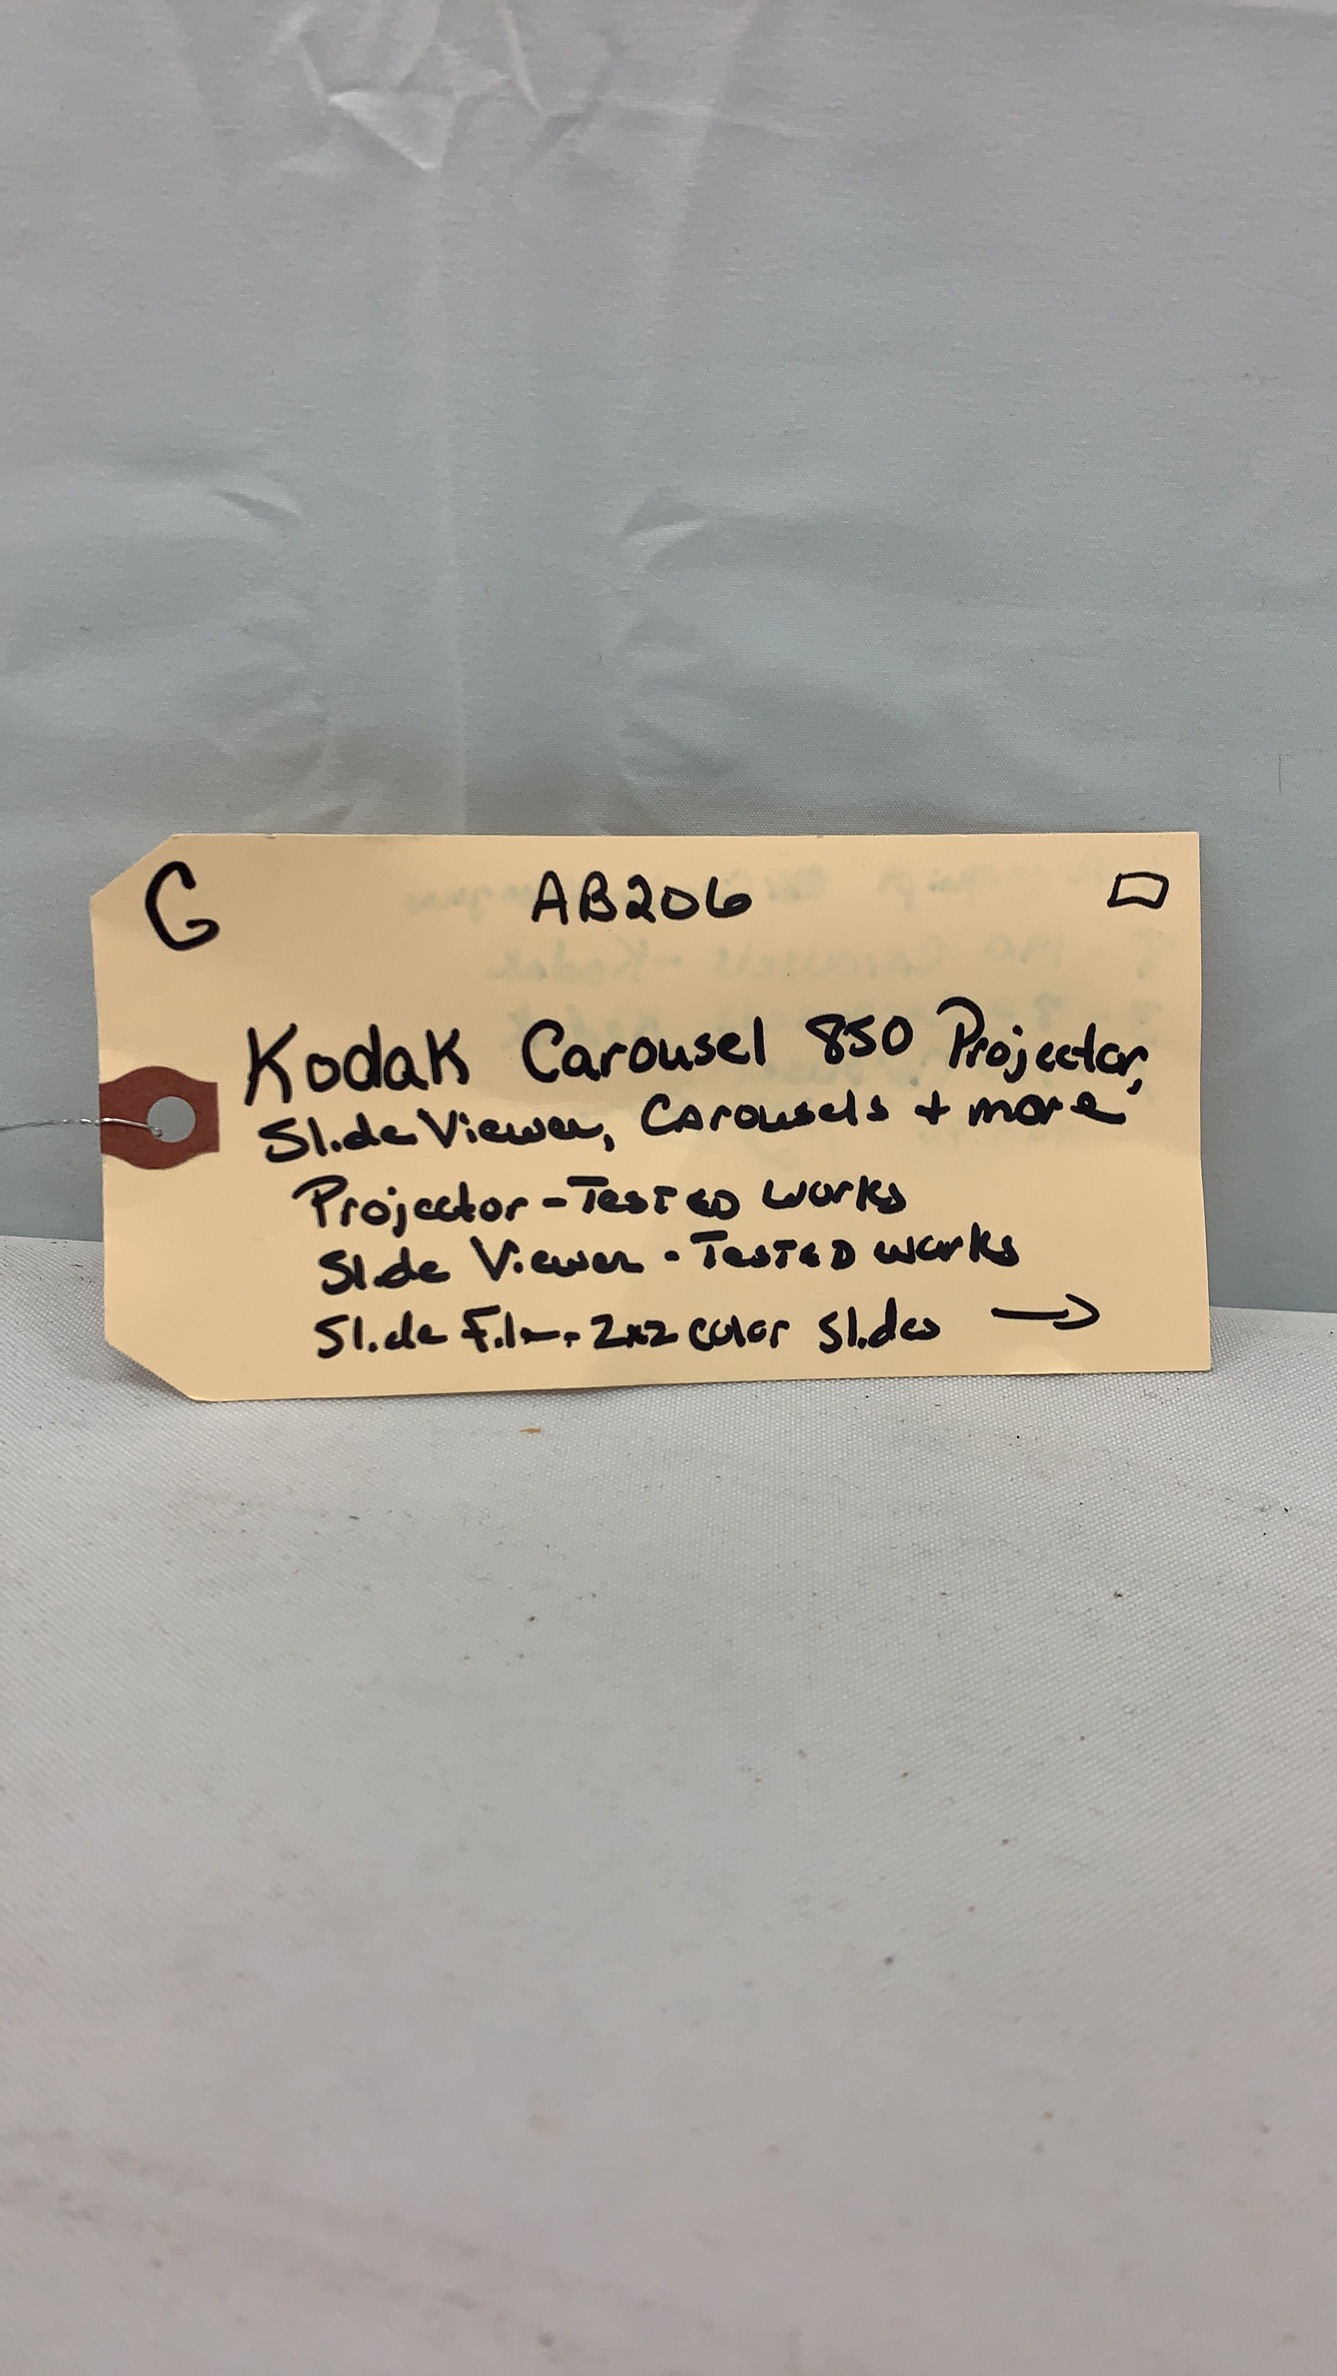 G AB206
Kodak Carousel 850 Projector,
Slide Viewer, Carousels + more
Projector - TESTED works
Slide Viewer - TESTED works
Slide Film - 2x2 color slides →